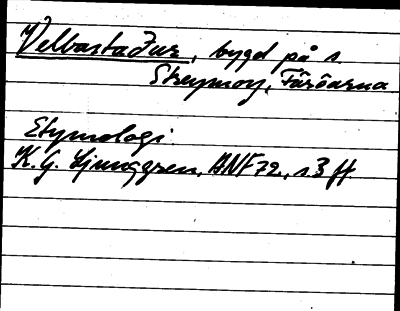 Velbastaður, bygd på s.
Streymoy, Färöarna
Etymologi
K. G. Ljunggren, ANF 72, s. 3 ff.